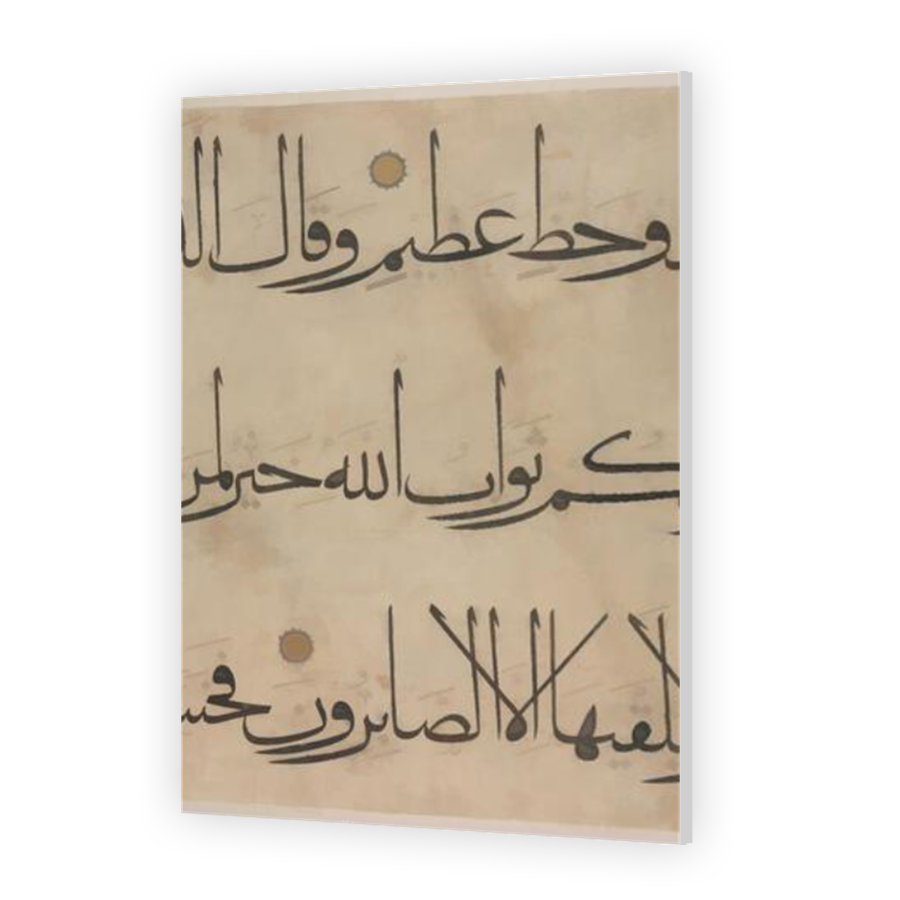 وحظ عظيم وقال
ـكم ثواب الله خير لمن
يلقيها الا الصابرون